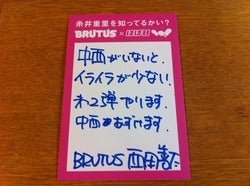 糸井重里を知ってるかい?
BRUTUS × ほぼ日
中西がいないと、
イライラが少ない。
第2弾でります。
中西あずけます。
BRUTUS 西田善太